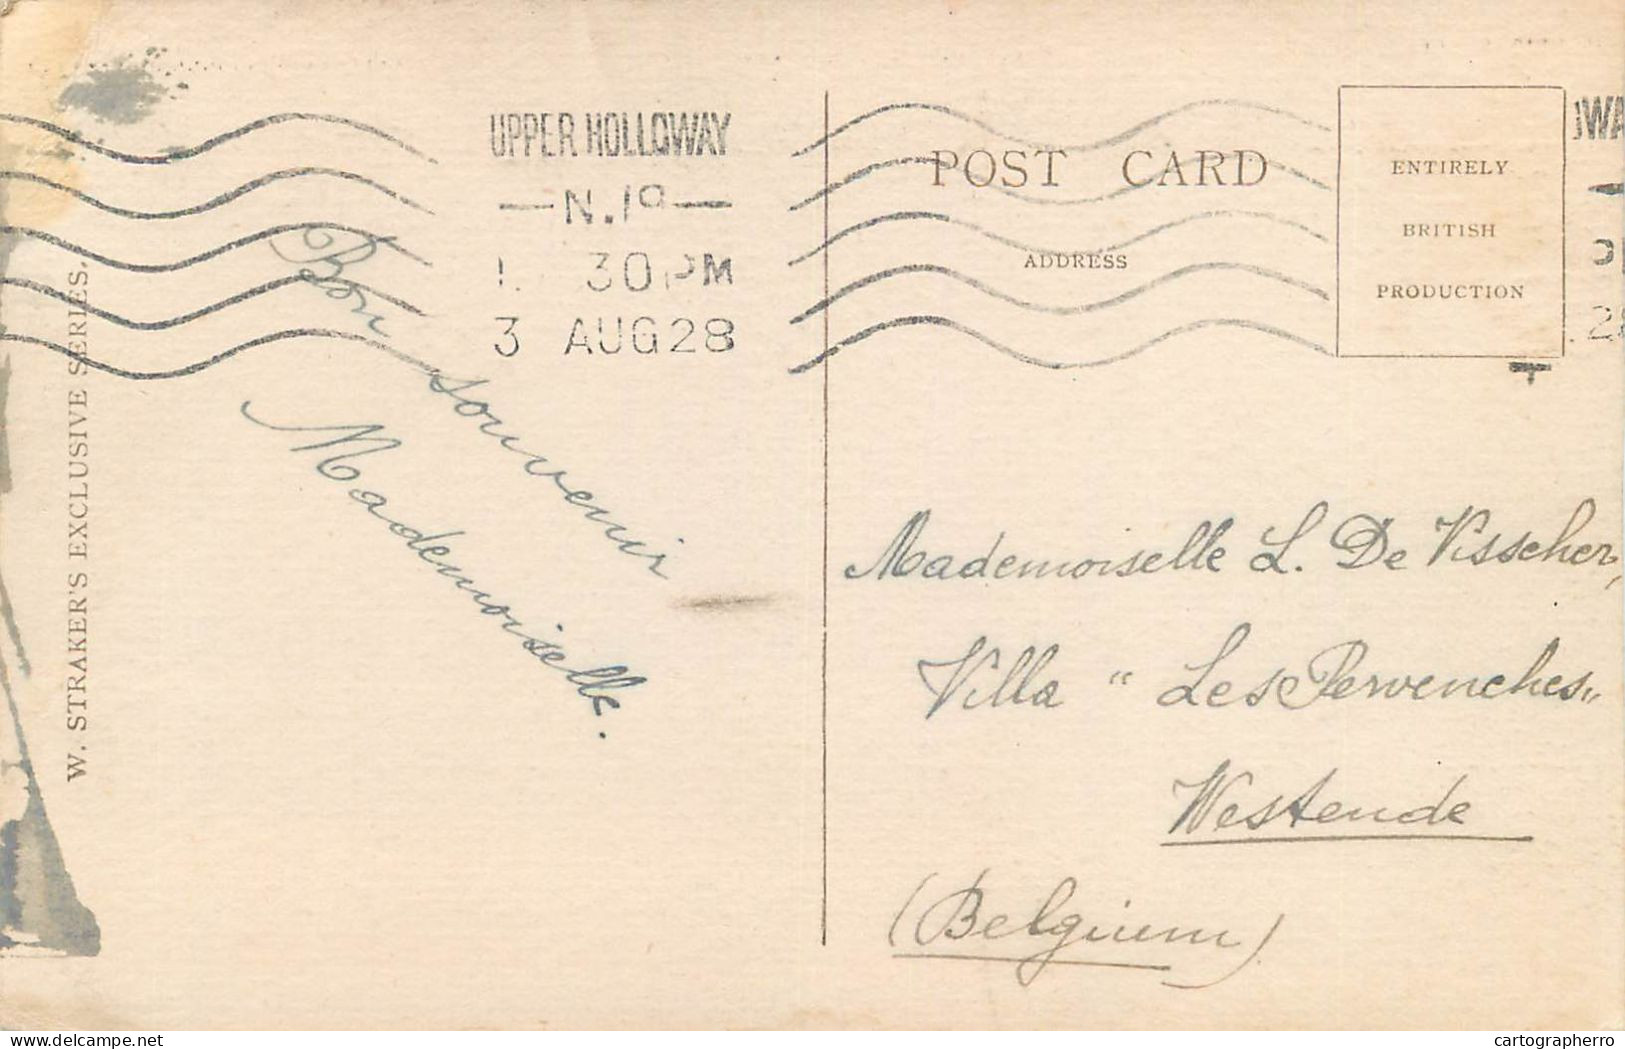 UPPER HOLLOWAY
N.19
30 PM
3 AUG 28
Bon souvenir
Mademoiselle.
W. STRAKER'S EXCLUSIVE SERIES.
POST CARD
ADDRESS
ENTIRELY
BRITISH
PRODUCTION
Mademoiselle L. De Visscher,
Villa “ Les Pervenches„
Westende
(Belgium)
delcampe.net
cartographerro